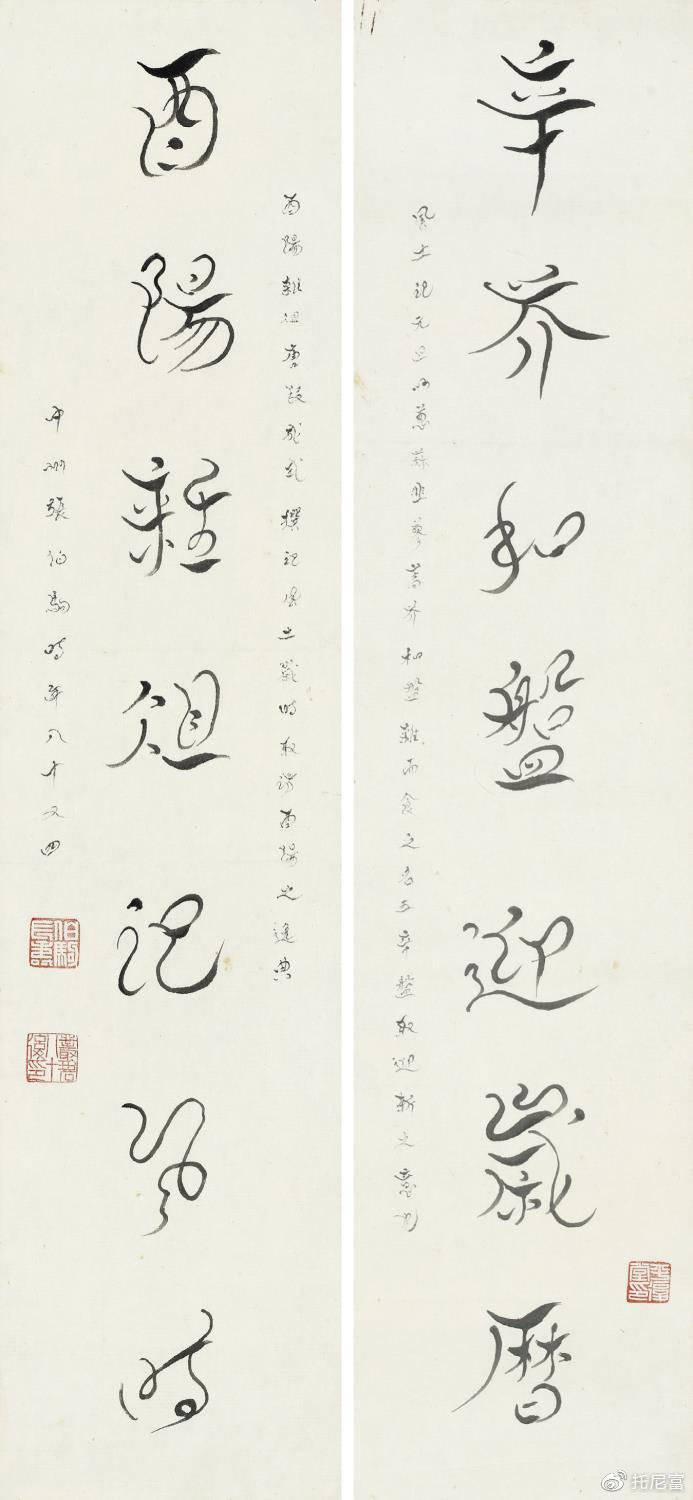 辛芥和盤迎歲曆
風土記元旦以蔥蒜韭蓼蒿芥和盤雜而食之名五辛盤取迎新之意也
酉陽雜俎記風時
酉陽雜俎唐段成式撰記風土歲時取諸酉陽之逸典
中州張伯駒時年八十又四
伯駒長壽
托尼富